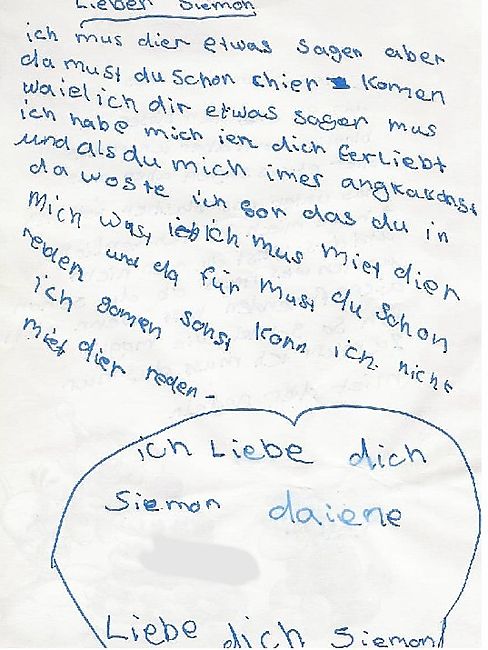 Lieber Siemon
ich mus dier etwas sagen aber
da must du schon chier komen
waiel ich dir etwas sagen mus
ich habe mich ien dich ferliebt
und als du mich imer angkakdnst
da woste ich son das du in
mich wast ich mus miet dier
reden und da für must du schon
ich gomen sonst kann ich nicht
miet dier reden-
ich Liebe dich
Siemon daiene
Liebe dich Siemon